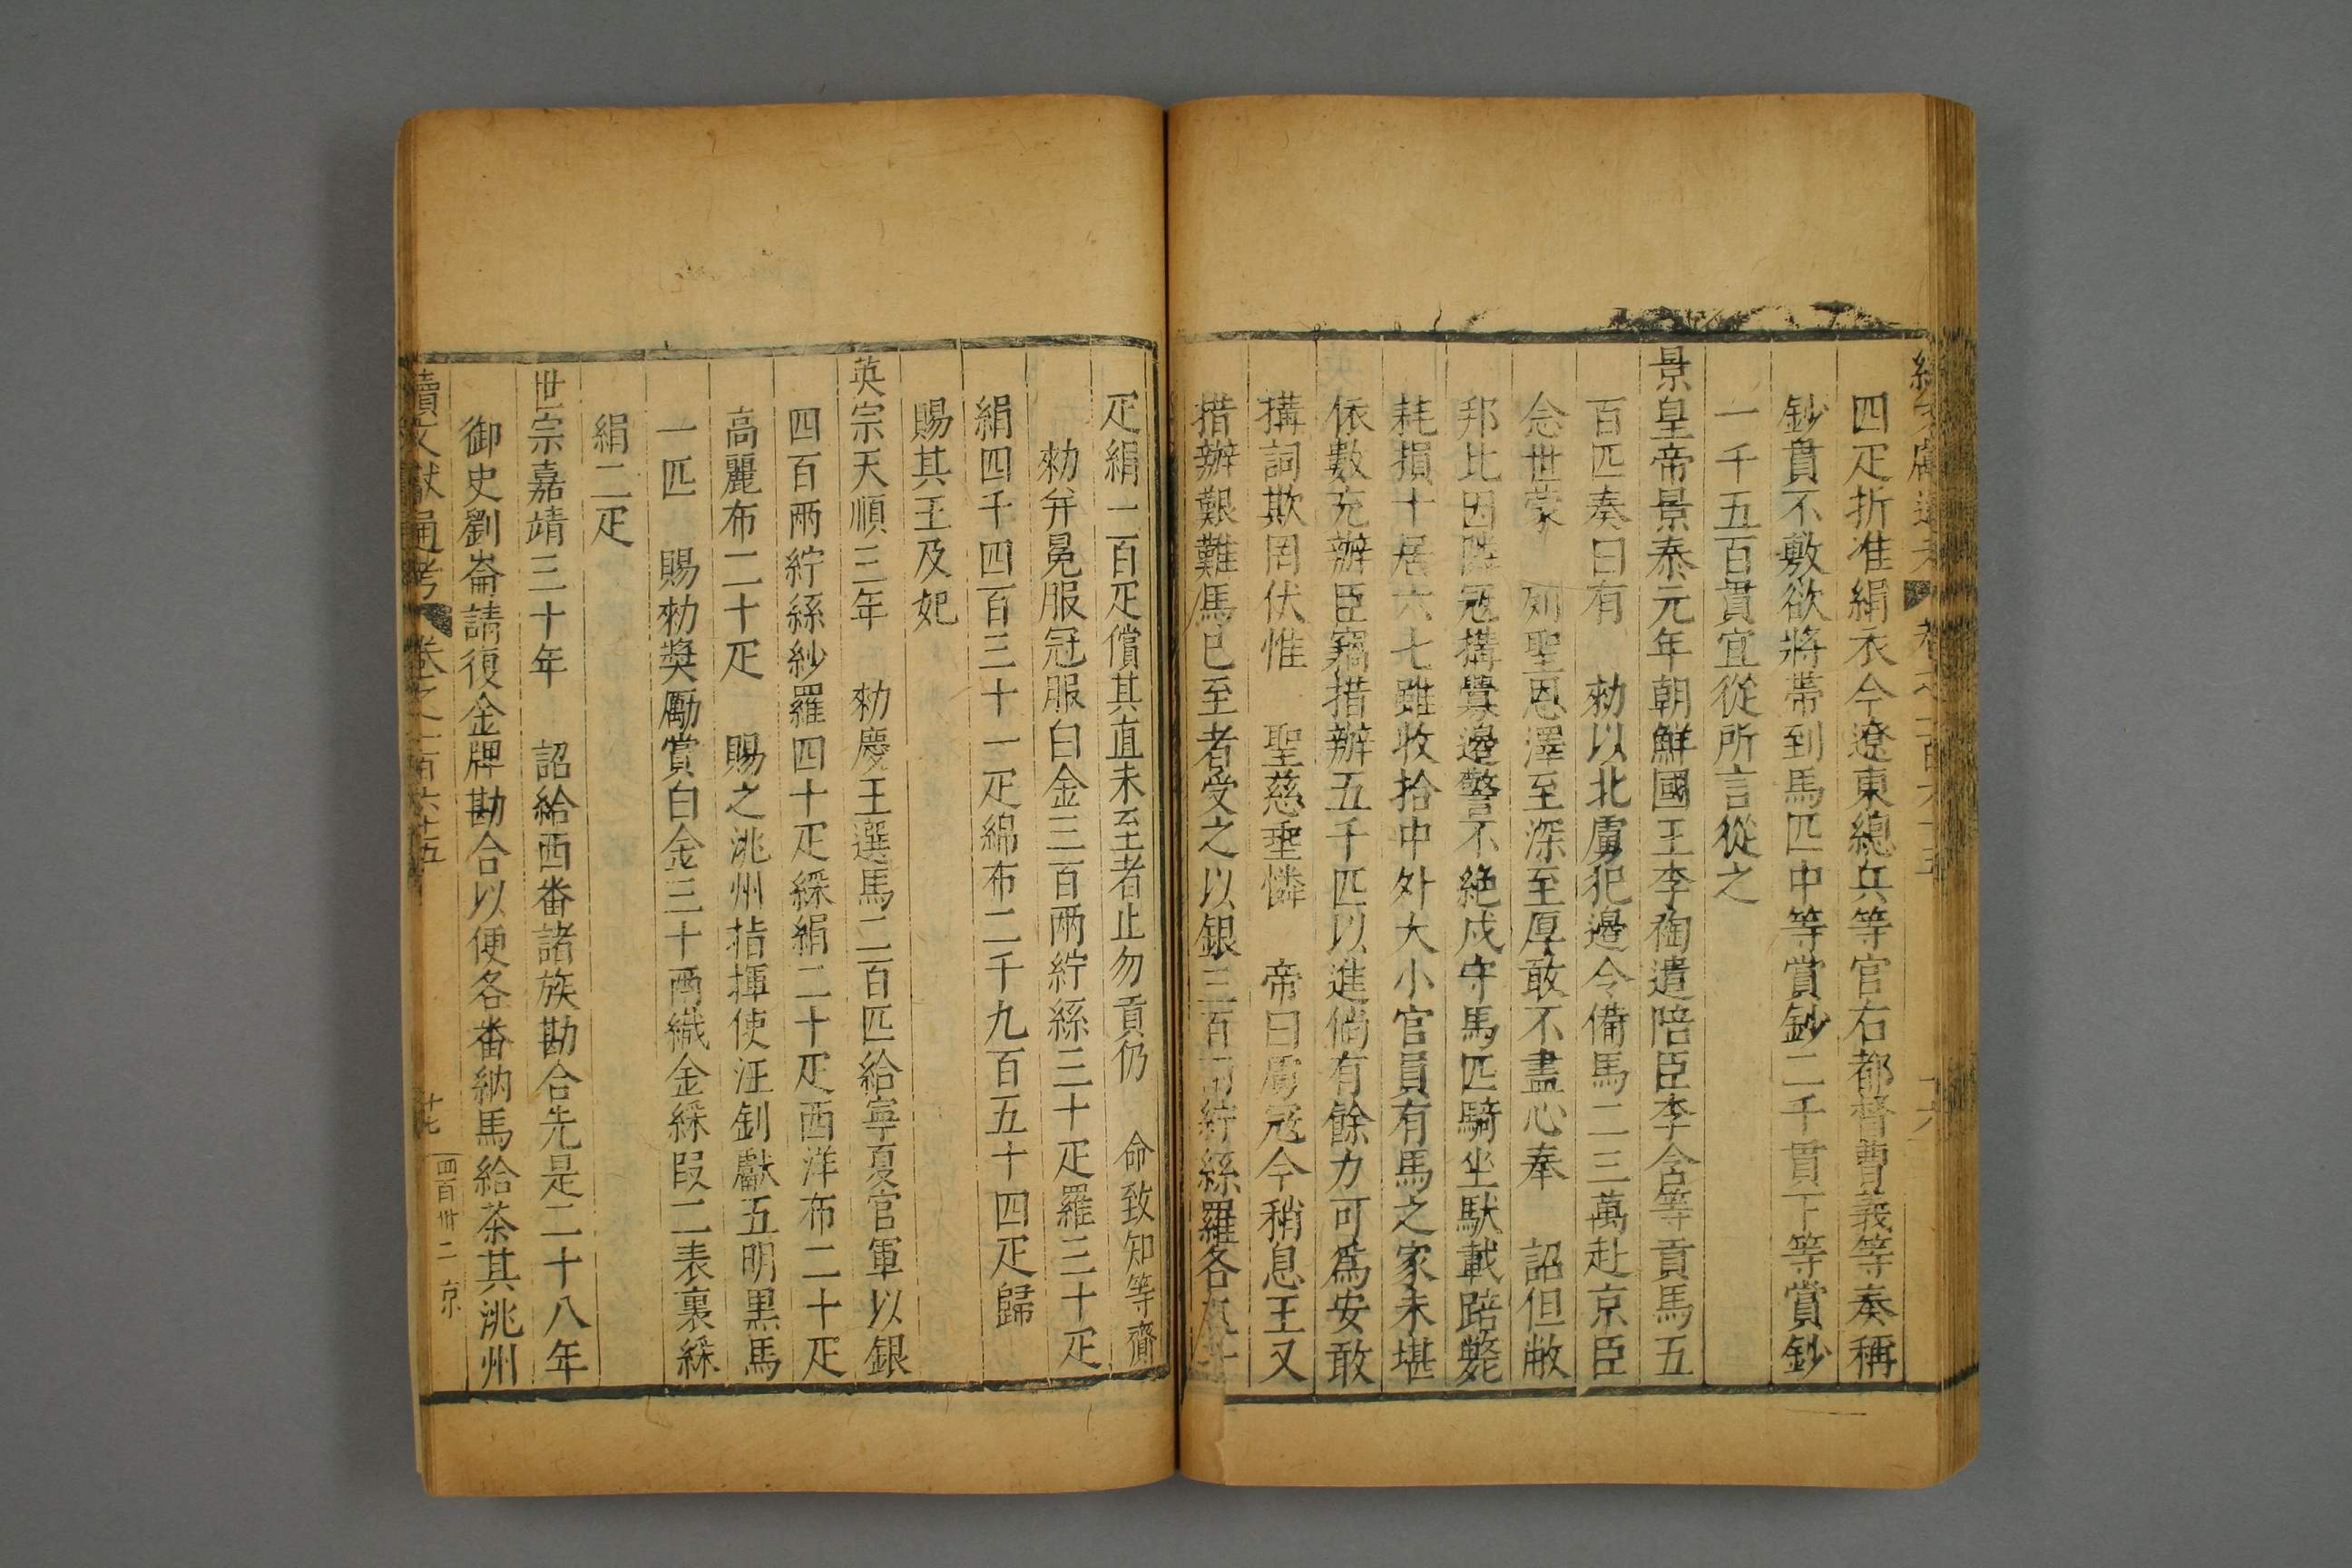 四疋折准絹衣今遼東總兵等官右都督曹義等奏稱
鈔貫不敷欲將帶到馬匹中等賞鈔二千貫下等賞鈔
一千五百貫宜從所言從之
景皇帝景泰元年朝鮮國王李祹遣陪臣李含等貢馬五
百匹奏曰有　勑以北虜犯邊令備馬二三萬赴京臣
念世蒙　列聖恩澤至深至厚敢不盡心奉　詔但敝
邦比因隣冦搆釁邊警不絶戍守馬匹騎坐馱載踣斃
耗損十居六七雖收拾中外大小官員有馬之家未堪
依數充辦臣竊措辦五千匹以進倘有餘力可爲安敢
搆詞欺罔伏惟　聖慈垂憐　帝曰虜冦今稍息王又
措辦艱難馬已至者受之以銀三百兩紵絲羅各
疋絹一百疋償其直未至者止勿貢仍　命致知等齎
勑并冕服冠服白金三百兩紵絲三十疋羅三十疋
絹四千四百三十一疋綿布二千九百五十四疋歸
賜其王及妃
英宗天順三年　勑慶王選馬二百匹給寧夏官軍以銀
四百兩紵絲紗羅四十疋綵絹二十疋西洋布二十疋
高麗布二十疋　賜之洮州指揮使汪釗獻五明黒馬
一匹　賜勑奬勵賞白金三十兩織金綵段二表裏綵
絹二疋
世宗嘉靖三十年　詔給西番諸族勘合先是二十八年
御史劉崙請復金牌勘合以便各番納馬給茶其洮州
續文獻通考　卷之二百六十五　十七　四百卅二　京